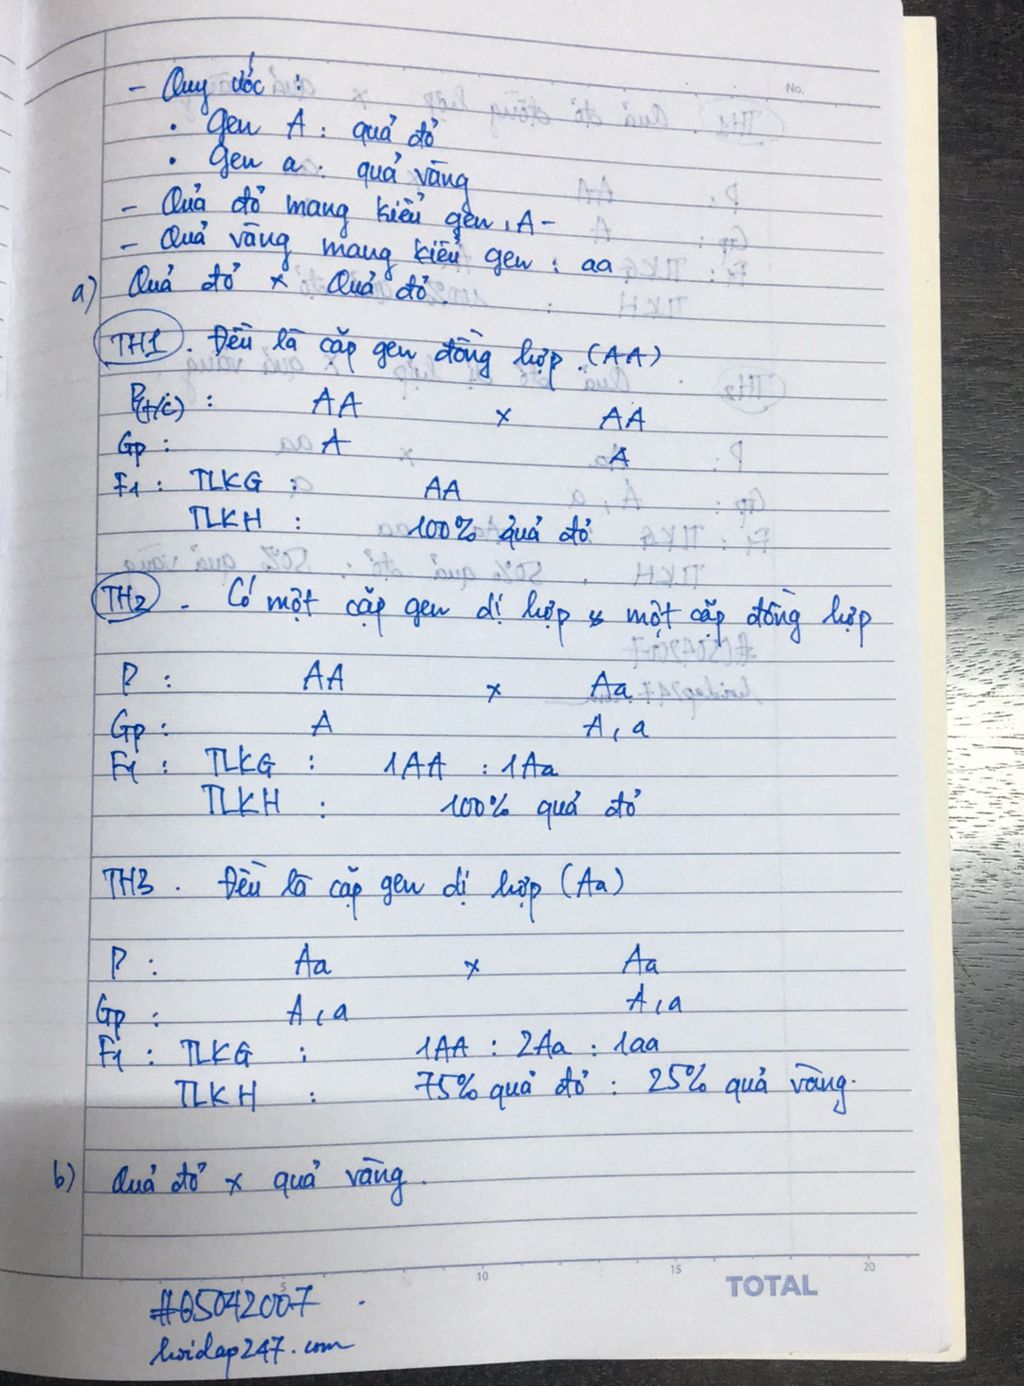 No.
- Quy ước :
• Gen A : quả đỏ
• Gen a : quả vàng
- Quả đỏ mang kiểu gen : A-
- Quả vàng mang kiểu gen : aa
a) Quả đỏ x Quả đỏ
TH1 . Đều là cặp gen đồng hợp . (AA)
P(t/c) : AA x AA
Gp : A A
F1 : TLKG : AA
TLKH : 100% quả đỏ
TH2 - Có một cặp gen dị hợp x một cặp đồng hợp
P : AA x Aa
Gp : A A, a
F1 : TLKG : 1AA : 1Aa
TLKH : 100% quả đỏ
TH3 . Đều là cặp gen dị hợp (Aa)
P : Aa x Aa
Gp : A, a A, a
F1 : TLKG : 1AA : 2Aa : 1aa
TLKH : 75% quả đỏ : 25% quả vàng.
b) Quả đỏ x quả vàng .
5 10 15 20
TOTAL
#05042007
hoidap247.com